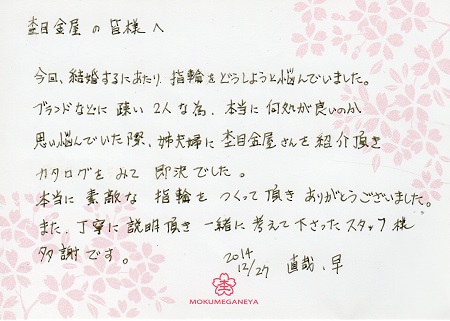 杢目金屋の皆様へ
今回、結婚するにあたり指輪をどうしようと悩んでいました。
ブランドなどに疎い2人な為、本当に何処が良いのか
思い悩んでいた際、姉夫婦に杢目金屋さんを紹介頂き
カタログをみて即決でした。
本当に素敵な指輪をつくって頂きありがとうございました。
また、丁寧に説明頂き一緒に考えて下さったスタッフ様
多謝です。
2014
12/27 直哉、早
MOKUMEGANEYA